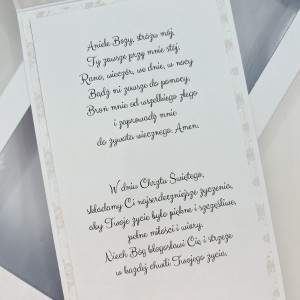 Aniele Boży, stróżu mój,
Ty zawsze przy mnie stój.
Rano, wieczór, we dnie, w nocy
Bądź mi zawsze do pomocy,
Broń mnie od wszelkiego złego
i zaprowadź mnie
do żywota wiecznego. Amen.
W dniu Chrztu Świętego,
składamy Ci najserdeczniejsze życzenia,
aby Twoje życie było piękne i szczęśliwe,
pełne miłości i wiary.
Niech Bóg błogosławi Cię i strzeże
w każdej chwili Twojego życia.